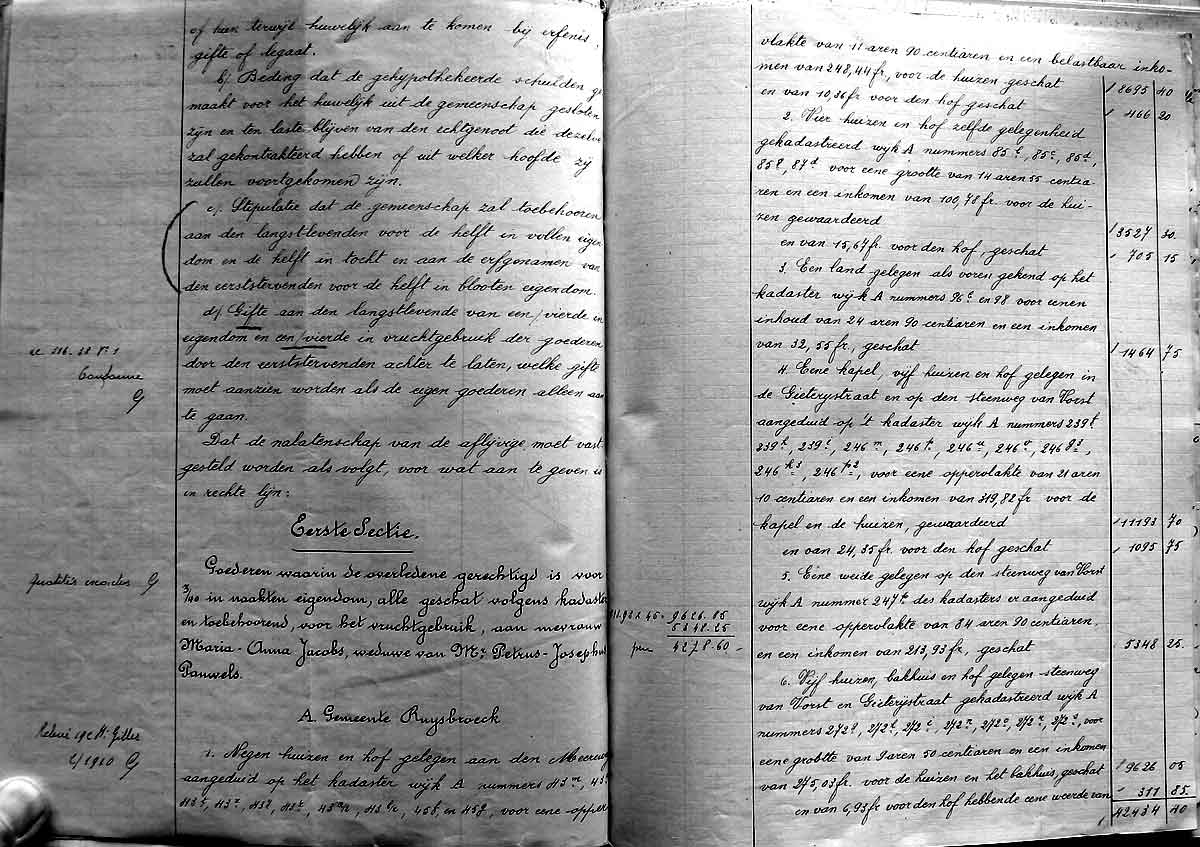 of hen terwijl huwelijk aan te komen bij erfenis,
gifte of legaat.
b/ Beding dat de gehypothekeerde schulden ge
maakt voor het huwelijk uit de gemeenschap gesloten
zijn en ten laste blijven van den echtgenoot die dezelve
zal gekontrakteerd hebben of uit welker hoofde zij
zullen voortgekomen zijn.
c/ Stipulatie dat de gemeenschap zal toebehooren
aan den langstlevenden voor de helft in vollen eigen
dom en de helft in tocht en aan de erfgenamen van
den eerststervenden voor de helft in blooten eigendom.
d/ Gifte aan den langstlevende van een/vierde in
eigendom en een/vierde in vruchtgebruik der goederen
door den eerststervenden achter te laten, welke gifte
moet aanzien worden als de eigen goederen alleen aan
te gaan.
Dat de nalatenschap van de aflijvige moet vast
gesteld worden als volgt, voor wat aan te geven is
in rechte lijn:
Eerste Sectie.
Goederen waarin de overledene gerechtigd is voor
3/40 in naakten eigendom, alle geschat volgens kadaster
en toebehoorend, voor het vruchtgebruik, aan mevrouw
Maria-Anna Jacobs, weduwe van Mr Petrus-Josephus
Pauwels.
A. Gemeente Ruysbroeck
1. Negen huizen en hof gelegen aan den
aangeduid op het kadaster wijk A nummers 43m,
en 45g, voor eene opper
G
G
4/1910 G
vlakte van 11 aren 90 centiaren en een belastbaar inko-
men van 248,44 fr, voor de huizen geschat 18695 40
en van 10,36 fr voor den hof geschat 466 20
2. Vier huizen en hof zelfde gelegenheid
gekadastreerd wijk A nummers 85b, 85c, 85d,
85g, 87d voor eene grootte van 14 aren 55 centia-
ren en een inkomen van 100,78 fr. voor de hui-
zen gewaardeerd 3527 30
en van 15,67 fr. voor den hof, geschat 705 15
3. Een land gelegen als voren gekend op het
kadaster wijk A nummers 96c en 98 voor eenen
inhoud van 24 aren 90 centiaren en een inkomen
van 32,55 fr., geschat 1464 75
4. Eene kapel, vijf huizen en hof gelegen in
de Gieterijstraat en op den steenweg van Vorst
aangeduid op 't kadaster wijk A nummers
246m, 246t, 246u, 246v,
voor eene oppervlakte van 21 aren
10 centiaren en een inkomen van 319,82 fr voor de
kapel en de huizen, gewaardeerd 11193 70
en van 24,35 fr. voor den hof geschat 1095 75
5. Eene weide gelegen op den steenweg van Vorst
wijk A nummer 247 des kadasters er aangeduid
voor eene oppervlakte van 84 aren 90 centiaren,
en een inkomen van 213,93 fr., geschat 5348 25
6. Vijf huizen, bakhuis en hof gelegen steenweg
van Vorst en Gieterijstraat gekadastreerd wijk A
nummers voor
eene grootte van 9 aren 50 centiaren en een inkomen
van 275,03 fr. voor de huizen en het bakhuis, geschat 9626 05
en van 6,93 fr voor den hof hebbende eene waerde van 311 85
42434 40
9626.85
5348.25
4278.60